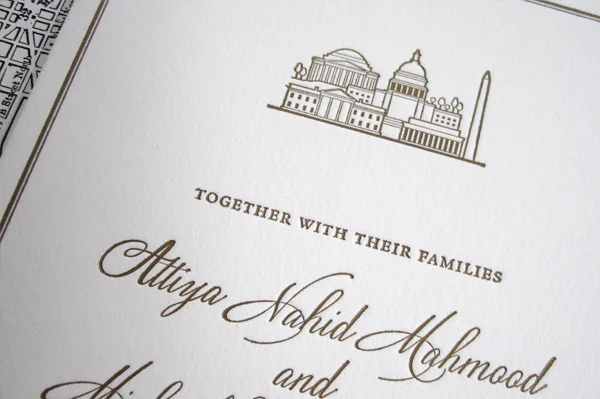 TOGETHER WITH THEIR FAMILIES
Attiya Nahid Mahmood
and